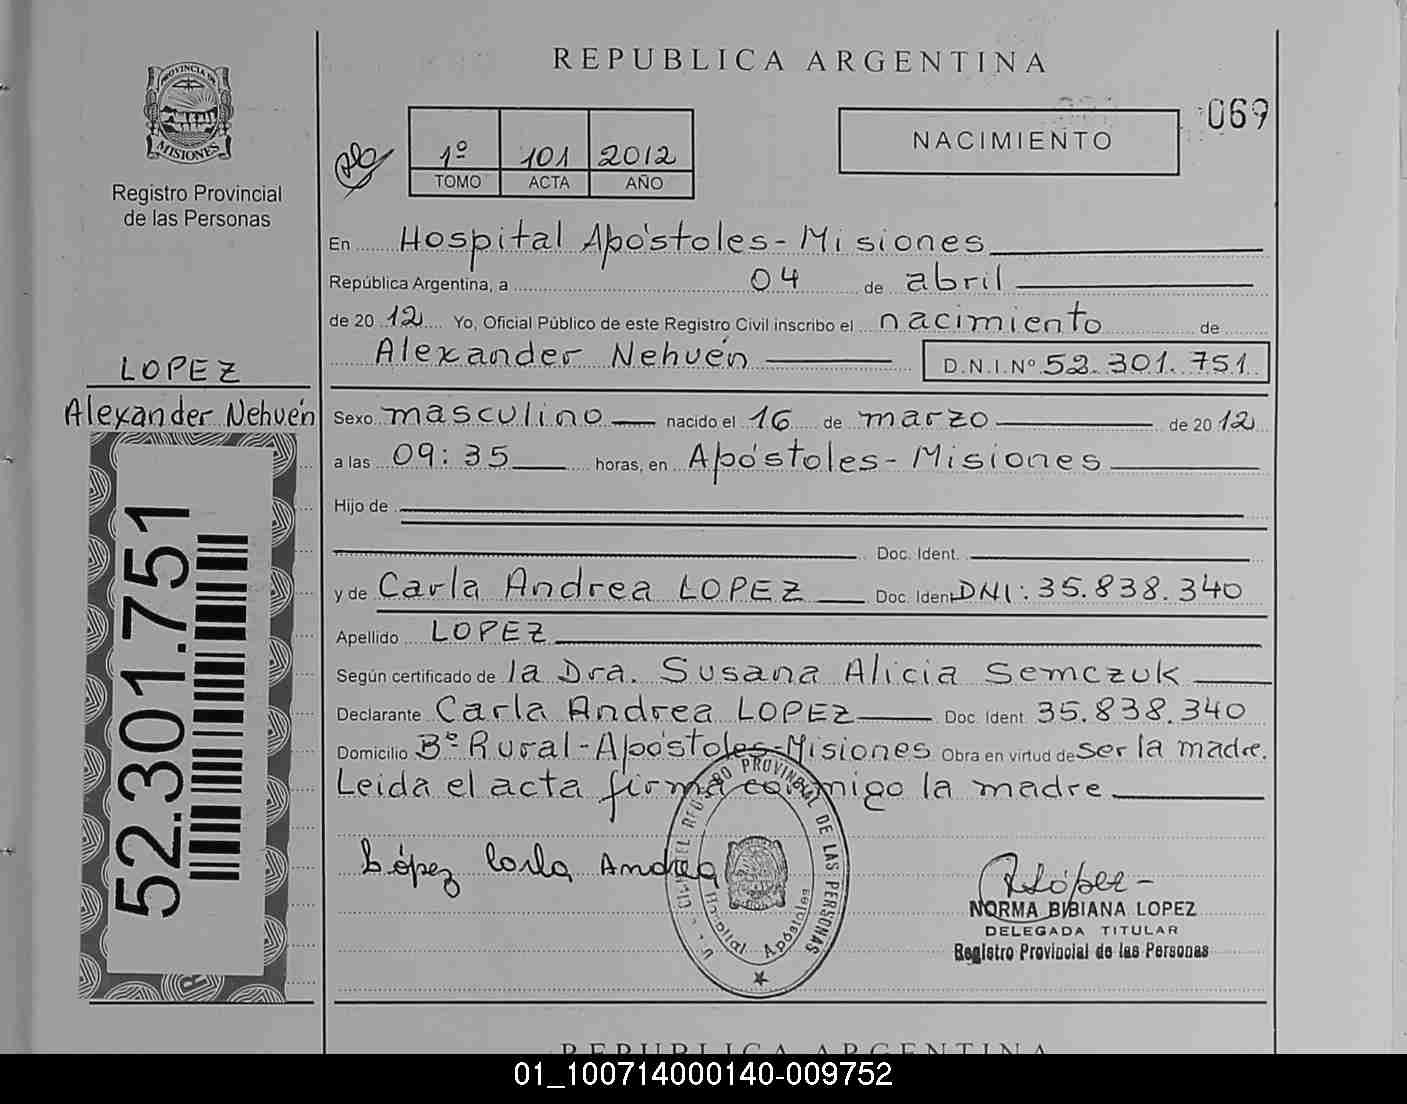 REPUBLICA ARGENTINA
PROVINCIA DE
MISIONES
Registro Provincial
de las Personas
1º 101 2012
TOMO ACTA AÑO
NACIMIENTO
069
En Hospital Apóstoles - Misiones
República Argentina, a 04 de abril
de 20 12 Yo, Oficial Público de este Registro Civil inscribo el nacimiento de
Alexander Nehuén D.N.I.Nº 52.301.751
LOPEZ
Alexander Nehuén
52.301.751
Sexo masculino nacido el 16 de marzo de 20 12
a las 09:35 horas, en Apóstoles - Misiones
Hijo de
Doc. Ident.
y de Carla Andrea LOPEZ Doc. Ident DNI: 35.838.340
Apellido LOPEZ
Según certificado de la Dra. Susana Alicia Semczuk
Declarante Carla Andrea LOPEZ Doc. Ident 35.838.340
Domicilio Bº Rural - Apóstoles - Misiones Obra en virtud de ser la madre.
Leida el acta firma conmigo la madre
López Carla Andrea
REGISTRO PROVINCIAL DE LAS PERSONAS
Hospital Apóstoles
NORMA BIBIANA LOPEZ
DELEGADA TITULAR
Registro Provincial de las Personas
REPUBLICA ARGENTINA
01_100714000140-009752